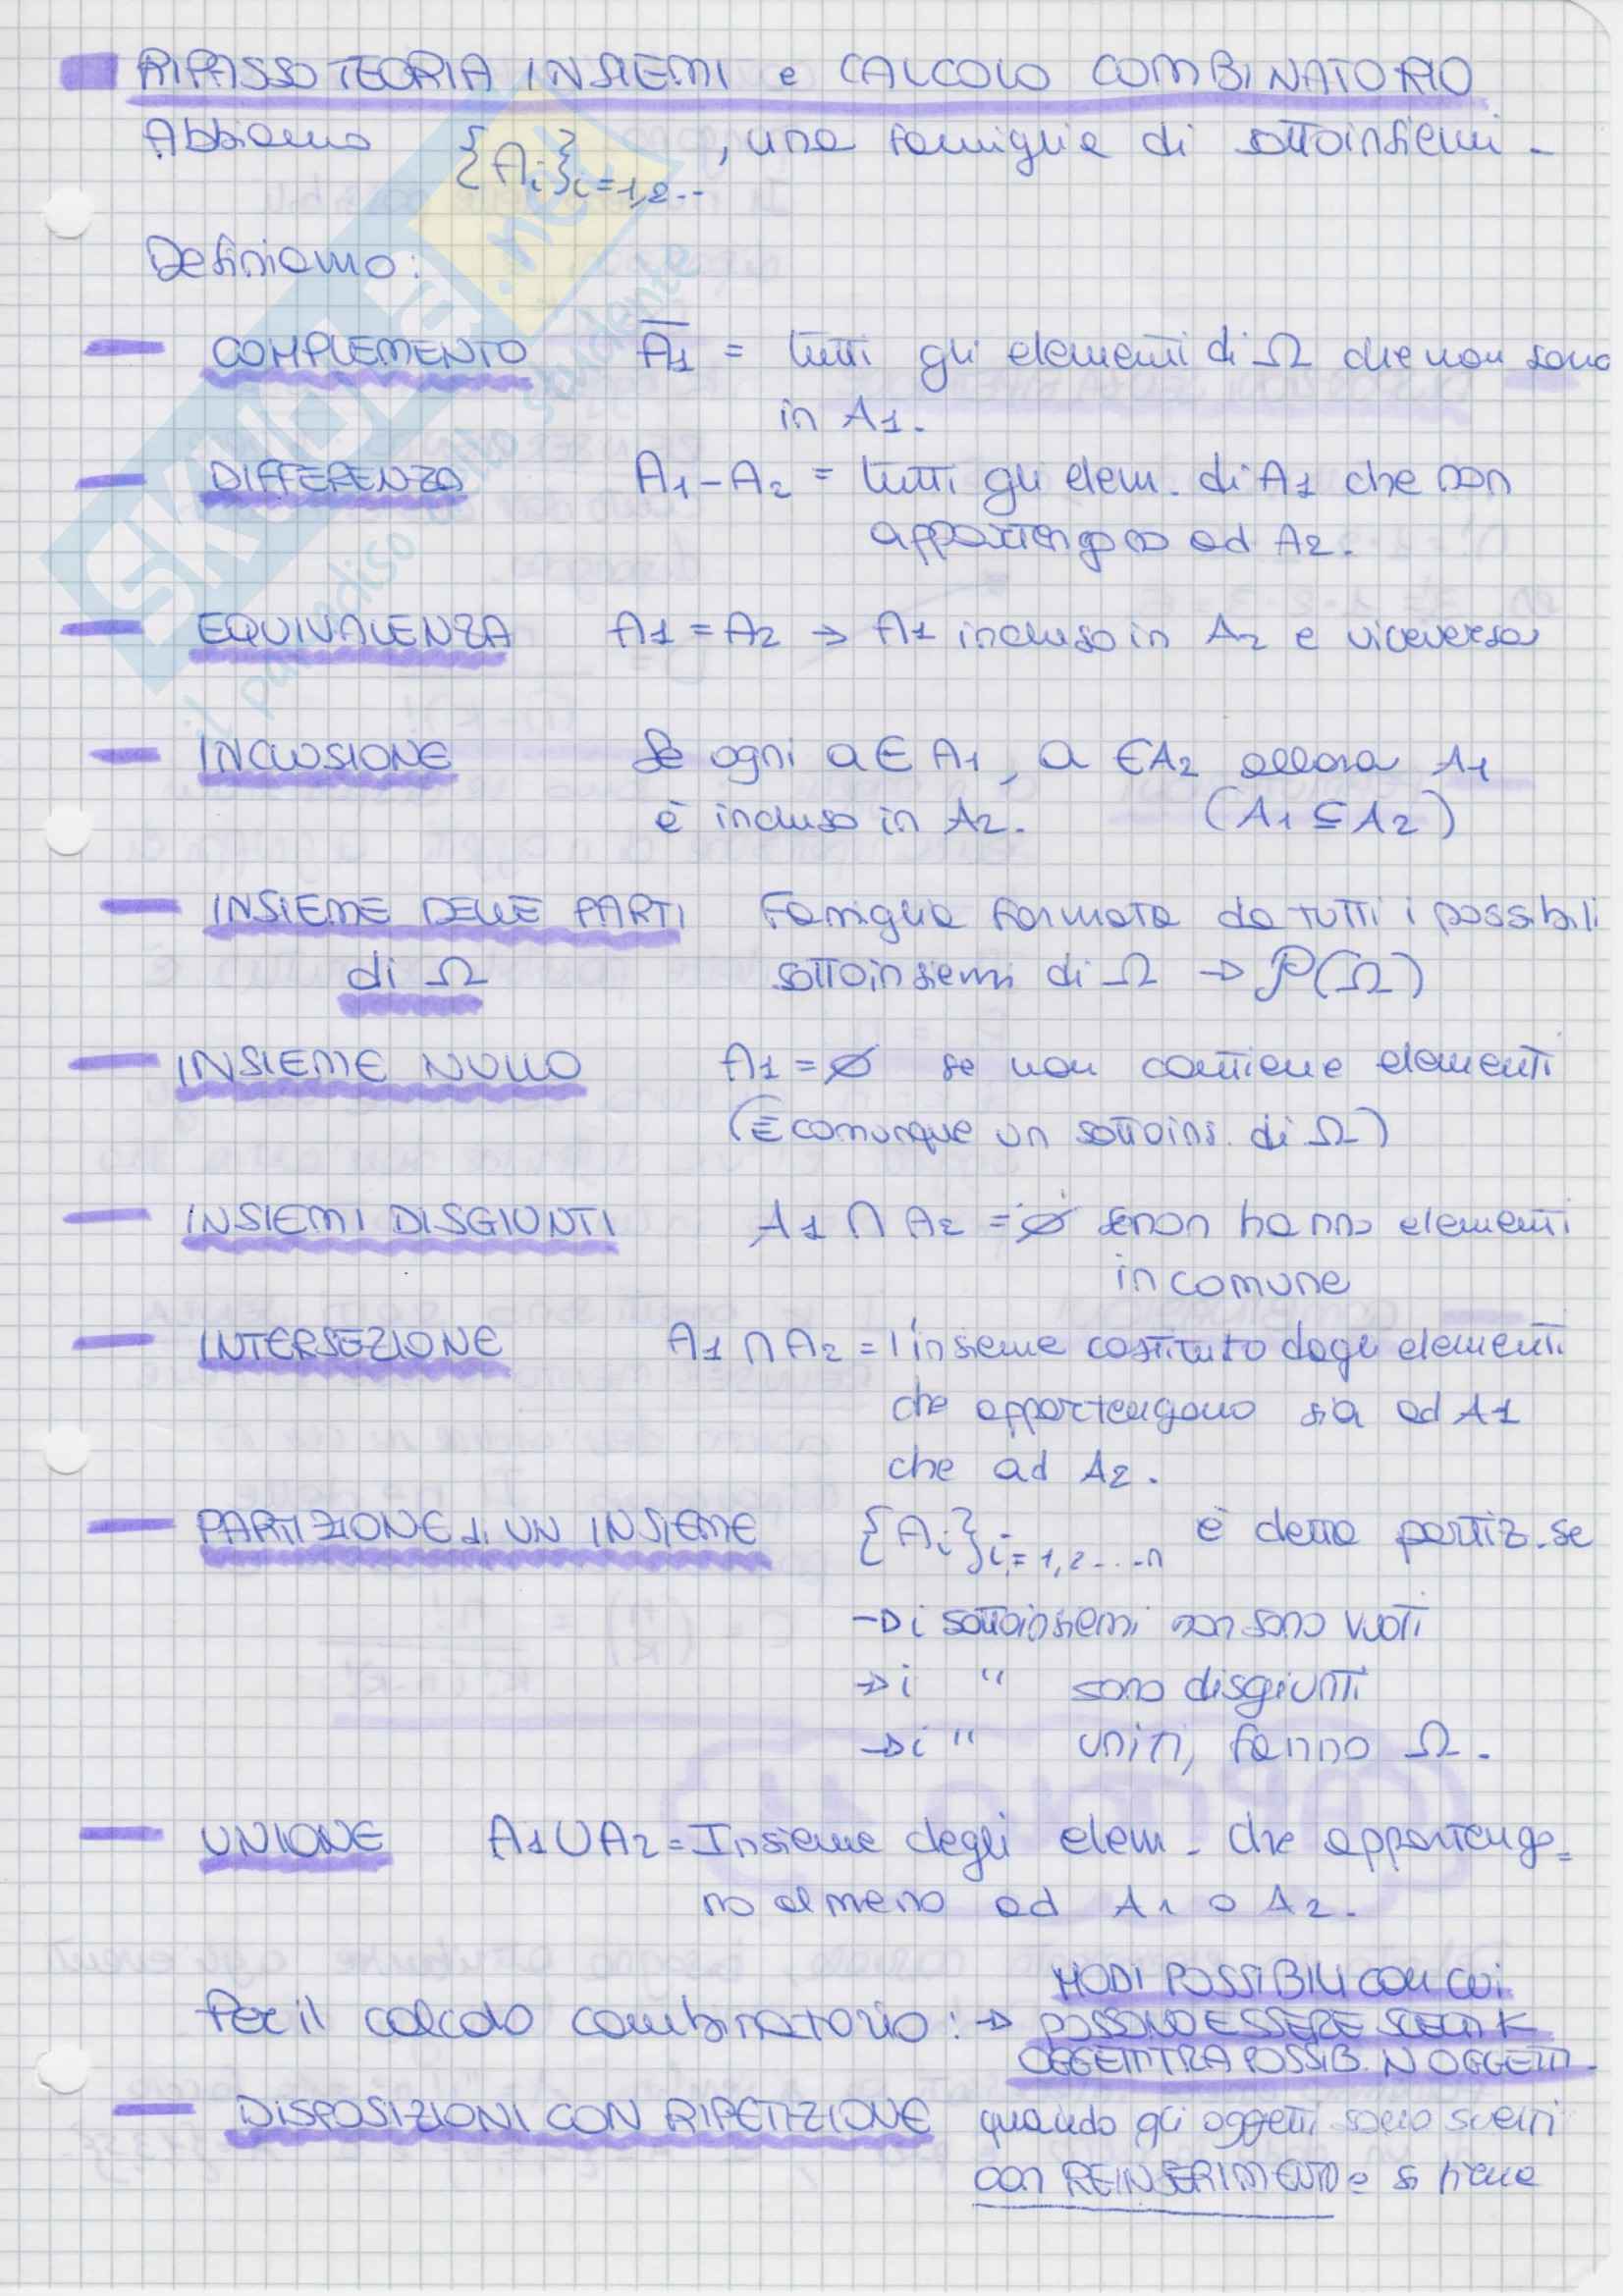 RIPASSO TEORIA INSIEMI e CALCOLO COMBINATORIO
Abbiamo {Ai}i=1,2.. , una famiglia di sottoinsiemi.
Definiamo:
COMPLEMENTO A̅1 = tutti gli elementi di Ω che non sono
in A1.
DIFFERENZA A1-A2 = tutti gli elem. di A1 che non
appartengono ad A2.
EQUIVALENZA A1 = A2 → A1 incluso in A2 e viceversa
INCLUSIONE Se ogni a ∈ A1, a ∈ A2 allora A1
è incluso in A2. (A1 ⊆ A2)
INSIEME DELLE PARTI Famiglia formata da tutti i possibili
di Ω sottoinsiemi di Ω → P(Ω)
INSIEME NULLO A1 = ∅ se non contiene elementi
(È comunque un sottoins. di Ω)
INSIEMI DISGIUNTI A1 ∩ A2 = ∅ se non hanno elementi
in comune
INTERSEZIONE A1 ∩ A2 = l'insieme costituito dagli elementi
che appartengono sia ad A1
che ad A2.
PARTIZIONE di UN INSIEME {Ai}i=1,2....n è detta partiz. se
→ i sottoinsiemi non sono vuoti
→ i " sono disgiunti
→ i " uniti, fanno Ω.
UNIONE A1 ∪ A2 = Insieme degli elem. che appartengo=
no almeno ad A1 o A2.
Per il calcolo combinatorio: → MODI POSSIBILI con cui
POSSONO ESSERE SCELTI K
OGGETTI TRA POSSIB. N OGGETTI.
DISPOSIZIONI CON RIPETIZIONE quando gli oggetti sono scelti
con REINSERIMENTO e si tiene
SKUOLA.net
il paradiso dello studente